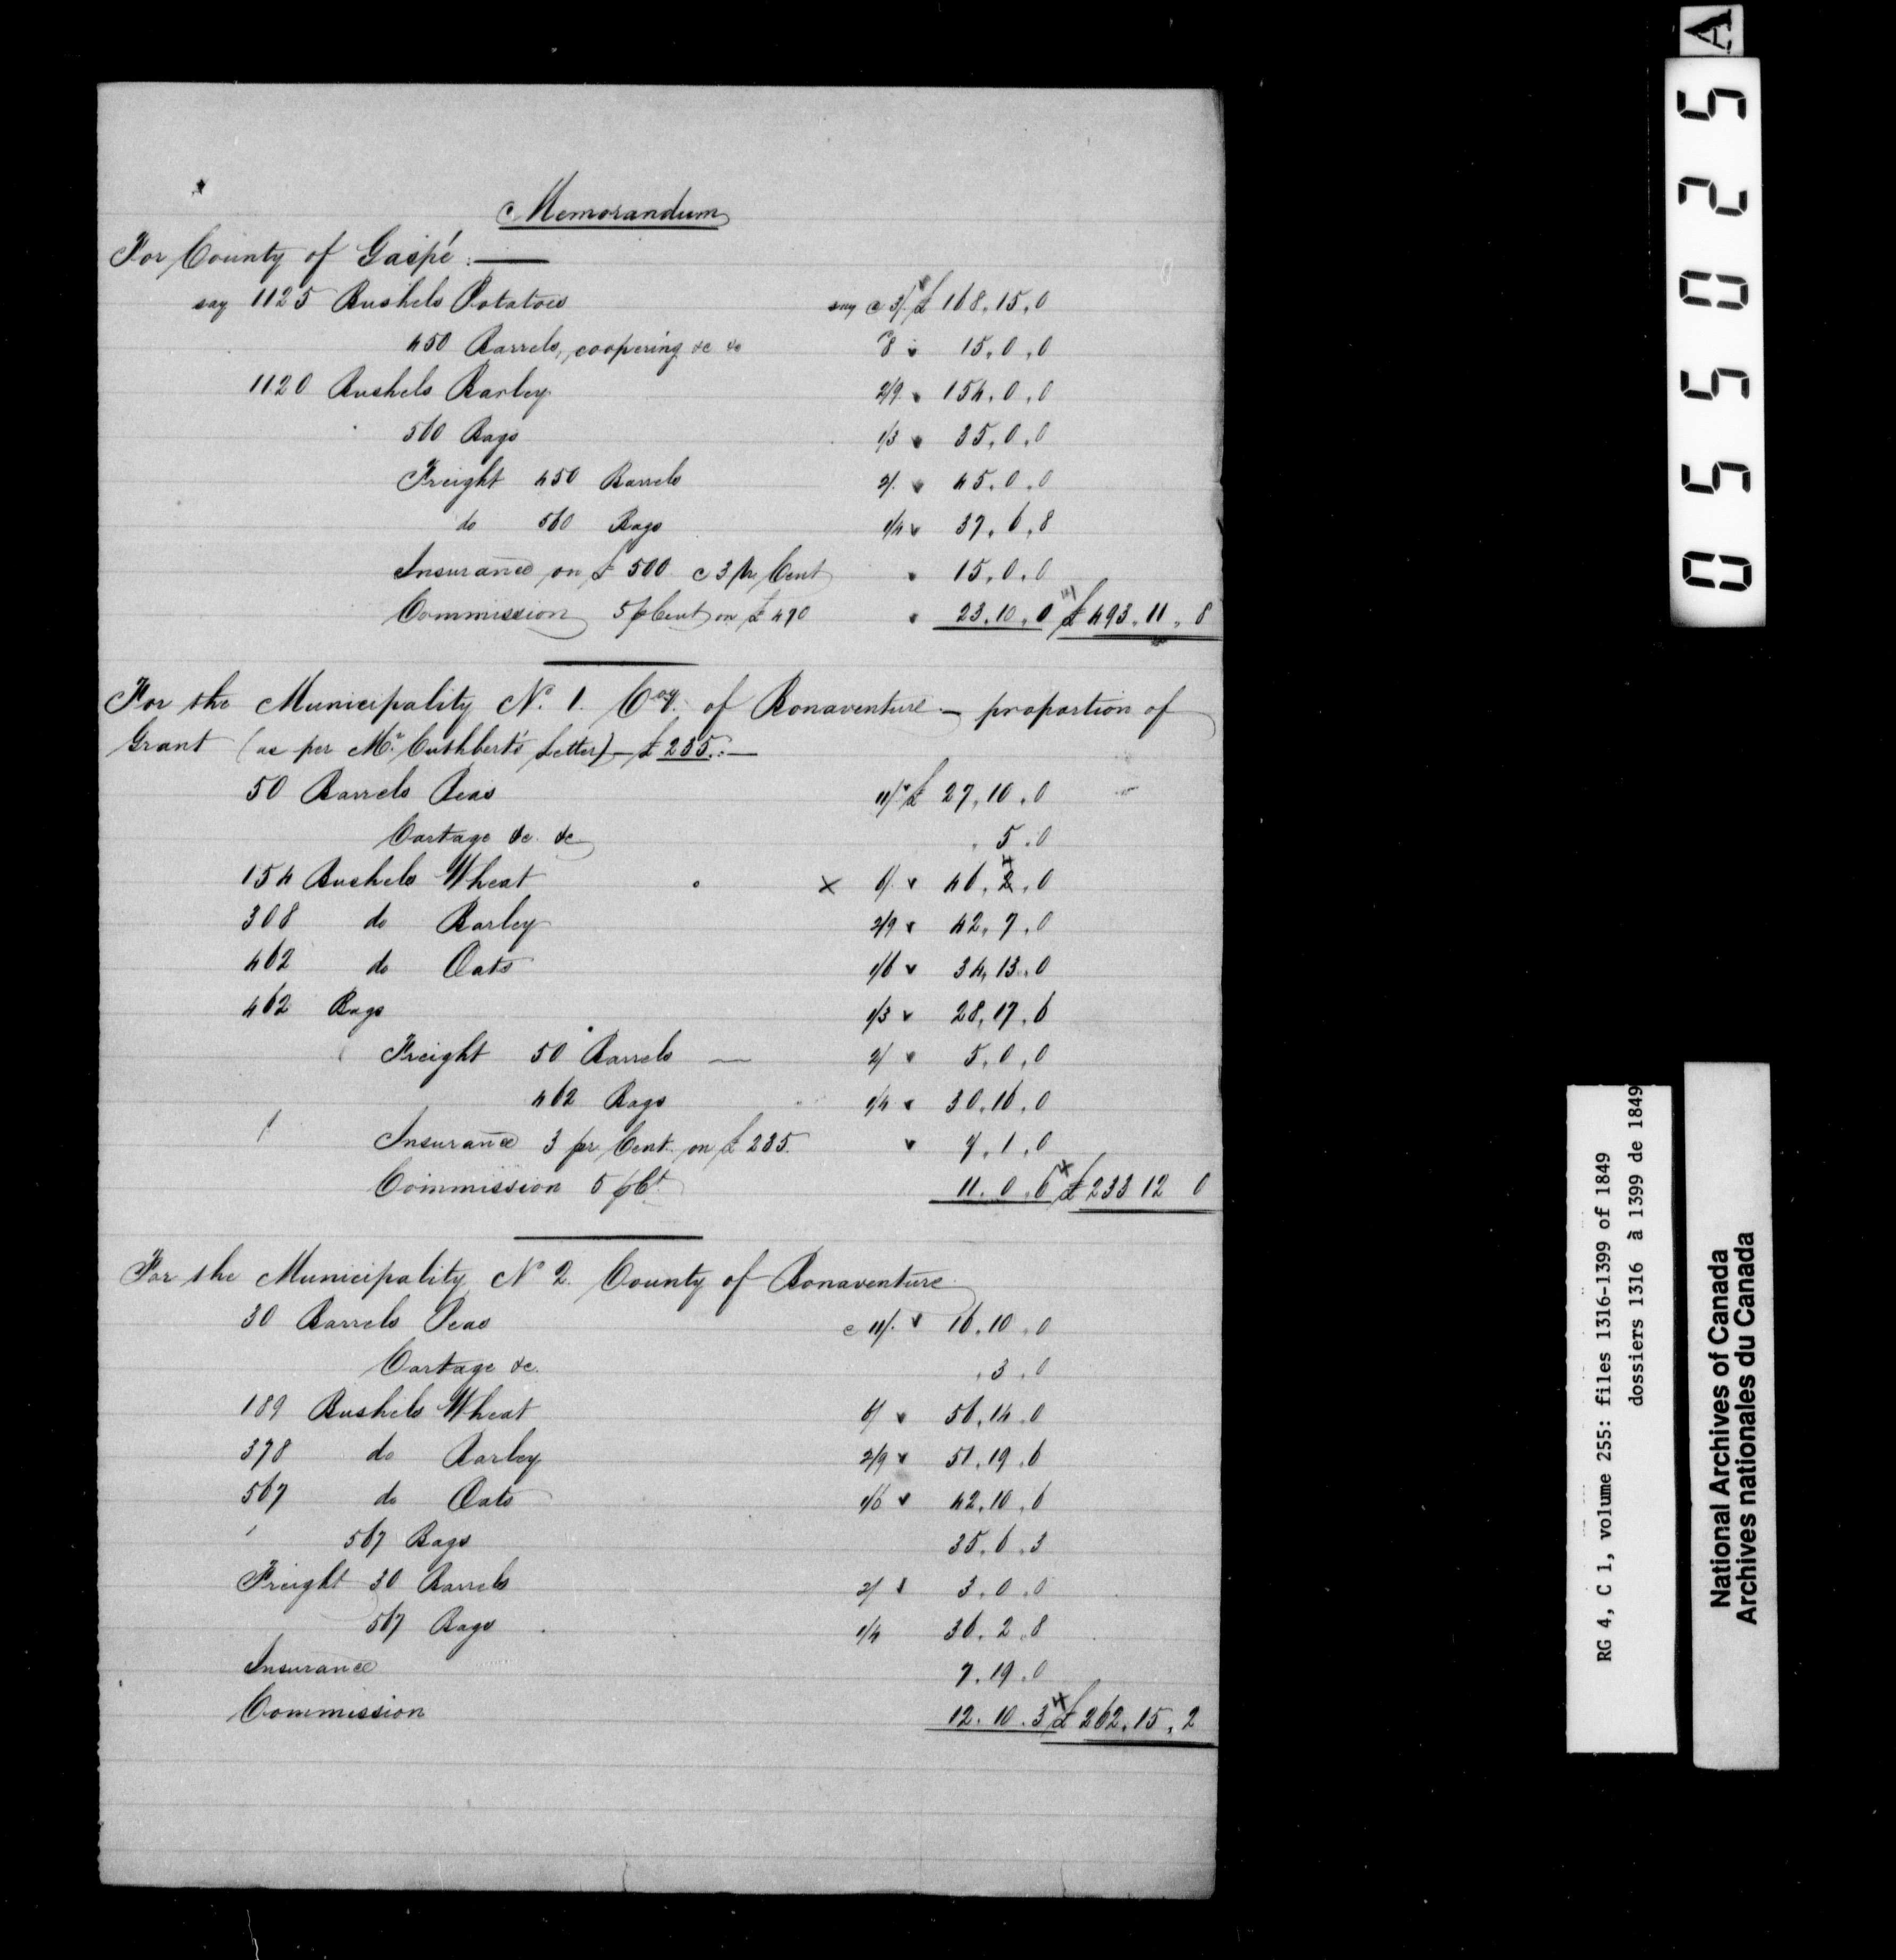 Memorandum
For County of Gaspé :—
say 1125 Bushels Potatoes say @ 3/. £ 168.15.0
450 Barrels, coopering &c &c 8 " 15.0.0
1120 Bushels Barley 2/9 " 154.0.0
560 Bags 1/3 " 35.0.0
Freight 450 Barrels 2/. " 45.0.0
do 560 Bags 1/4 " 37.6.8
Insurance on £ 500 @ 3 pr Cent " 15.0.0
Commission 5 p Cent on £ 470 " 23.10.0 £ 493.11.8
For the Municipality No. 1. Coy. of Bonaventure — proportion of
Grant (as per Mr. Cuthbert's Letter) — £ 235.:—
50 Barrels Peas 11/. £ 27.10.0
Cartage &c. &c . 5.0
154 Bushels Wheat x 6/. " 46.4.0
308 do Barley 2/9 " 42.7.0
462 do Oats 1/6 " 34.13.0
462 Bags 1/3 " 28.17.6
Freight 50 Barrels — 2/ " 5.0.0
462 Bags 1/4 " 30.16.0
Insurance 3 pr Cent. on £ 235. " 7.1.0
Commission 5 p Ct. 11.0.6 £ 233 12 0
For the Municipality No 2. County of Bonaventure.
30 Barrels Peas @ 11/. " 16.10.0
Cartage &c. . 3.0
189 Bushels Wheat 6/ " 56.14.0
378 do Barley 2/9 " 51.19.6
567 do Oats 1/6 " 42.10.6
567 Bags 35.6.3
Freight 30 Barrels 2/ " 3.0.0
567 Bags 1/4 36.2.8
Insurance 7.19.0
Commission 12.10.3 £ 262.15.2
055025 A
RG 4, C 1, volume 255: files 1316-1399 of 1849
dossiers 1316 à 1399 de 1849
National Archives of Canada
Archives nationales du Canada